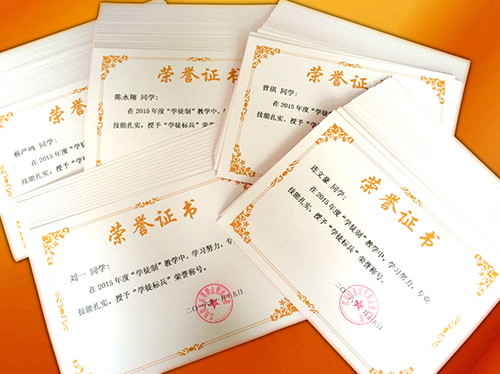 荣誉证书
蔡严鸣 同学:
在2015年度“学徒
技能扎实,授予“学
荣誉证书
陈永翔 同学:
在2015年度“学徒制”教学中,
技能扎实,授予“学徒标兵”荣
荣誉证书
曾琪 同学:
在2015年度“学徒制”教学中,
技能扎实,授予“学徒标兵”荣誉
荣誉证书
刘一 同学:
在2015年度“学徒制”教学中,学习努力,专
技能扎实,授予“学徒标兵”荣誉称号。
荣誉证书
连文豪 同学:
在2015年度“学徒制”教学中,学习努力,专业
技能扎实,授予“学徒标兵”荣誉称号。